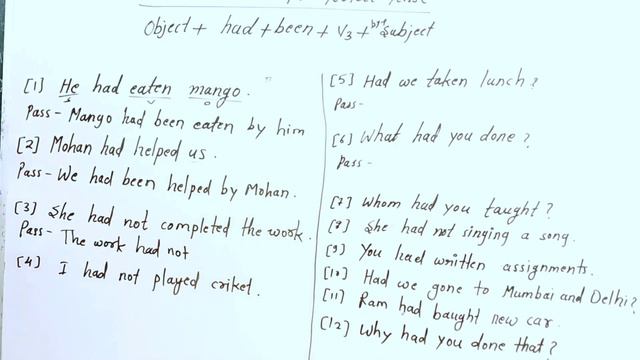 Object + had + been + V3 + by + Subject
[1] He had eaten mango.
Pass - Mango had been eaten by him
[2] Mohan had helped us.
Pass - We had been helped by Mohan.
[3] She had not completed the work.
Pass - The work had not
[4] I had not played criket.
[5] Had we taken lunch?
Pass -
[6] What had you done?
Pass -
[7] Whom had you taught?
[8] She had not singing a song.
[9] You had written assignments.
[10] Had we gone to Mumbai and Delhi?
[11] Ram had baught new car.
[12] Why had you done that?